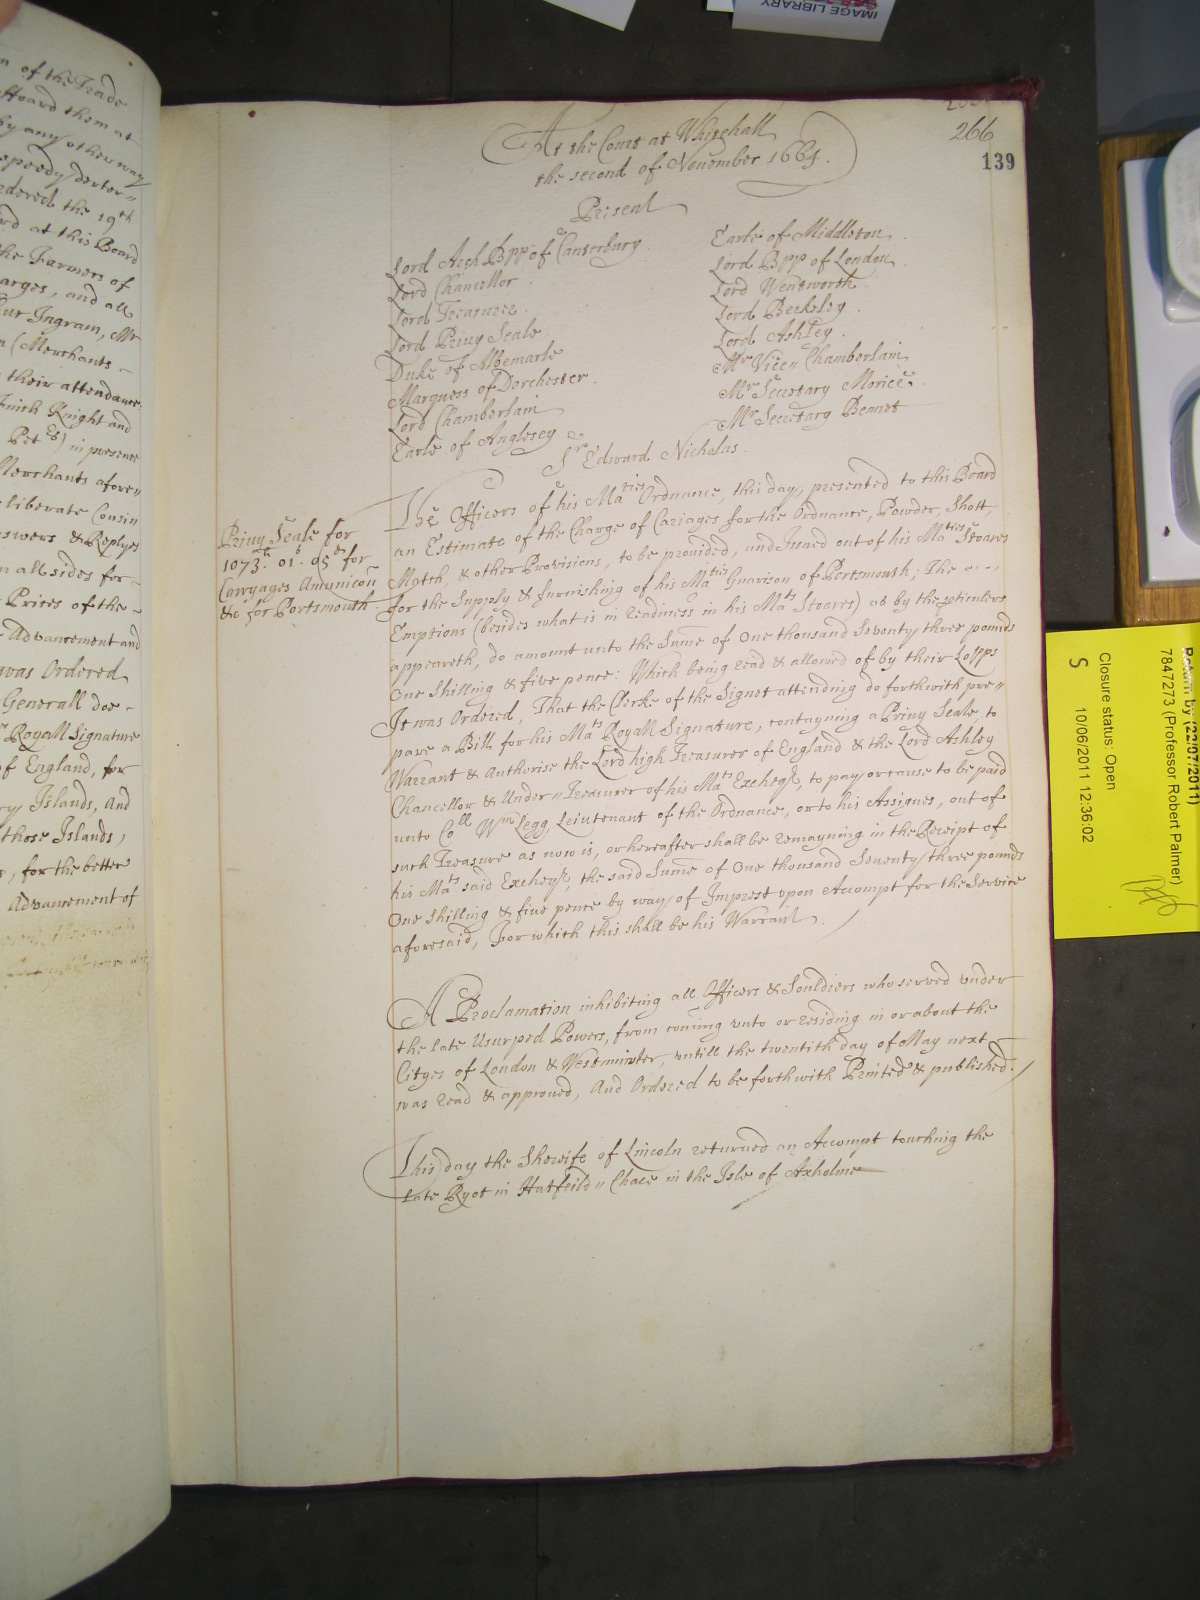 IMAGE LIBRARY
n of the Trade
affoard them at
by any other way
speedy deter„
ordered the 19th
ord at this Board
the Farmers of
arges, and all
ur Ingram, Mr
n (Merchants –
their attendance.
Finch Knight and
Pet) in presence
Merchants afore„
eliberate Consi
swers & Replyes
n all sides for –
Prices of the –
Advancement and
was Ordered
Generall doe –
Royall Signature
of England, for
ry Islands, and
those Islands,
, for the better
Advancement of
266
139
At the Court at Whitehall
the second of November 1664.
Present
Lord Arch Bpp of Canterbury
Lord Chancellor
Lord Treasurer
Lord Privy Seale
Duke of Albemarle
Marquess of Dorchester
Lord Chamberlain
Earle of Anglesey
Earle of Middleton
Lord Bpp of London
Lord Wentworth
Lord Berkeley
Lord Ashley
Mr Vice„ Chamberlain
Mr Secretary Morice
Mr Secretary Bennet
Sr Edward Nicholas
Privy Seale for
1073li. 01s. 05d for
Carryages Amunicon
&c for Portsmouth
The Officers of his Maties Ordnance, this day, presented to this Board
an Estimate of the Charge of Cariages for the Ordnance, Powder, Shott
Match, & other Provisions, to be provided, and Issued out of his Maties Stoares
for the Supply & furnishing of his Maties Guarison of Portsmouth; The
Emptions (besides what is in readiness in his Mats Stoares) as by the pticulers
appeareth, do amount unto the Sume of One thousand Seventy three pounds
One Shilling & five pence: Which being read & allowed of by their Lopps
It was Ordered, That the Clerke of the Signet attending do forthwith pre„
pare a Bill for his Mats Royall Signature, contayning a Privy Seale, to
Warrant & Authorise the Lord high Treasurer of England & the Lord Ashley
Chancellor & Under„Treasurer of his Mats Excheqr, to pay or cause to be paid
unto Coll Wm Legg, Leiutenant of the Ordnance, or to his Assignes, out of
such Treasure as now is, or hereafter shall be remayning in the Receipt of
his Mats said Excheqr, the said Sume of One thousand Seventy three pounds
One Shilling & five pence by way of Imprest vpon Accompt for the Service
aforesaid, For which this shall be his Warrant.
A Proclamation inhibiting all Officers & Souldiers who served under
the late Usurped Powers, from coming vnto or residing in or about the
Cityes of London & Westminster, vntill the twentith day of May next
was read & approved, And Ordered to be forthwith Printed & published.
This day the Sherife of Lincoln returned an Accompt touching the
late Ryot in Hatfeild„ Chace in the Isle of Axholme
Return by (22/07/2011)
7847273 (Professor Robert Palmer)
Closure status: Open
S 10/06/2011 12:36:02